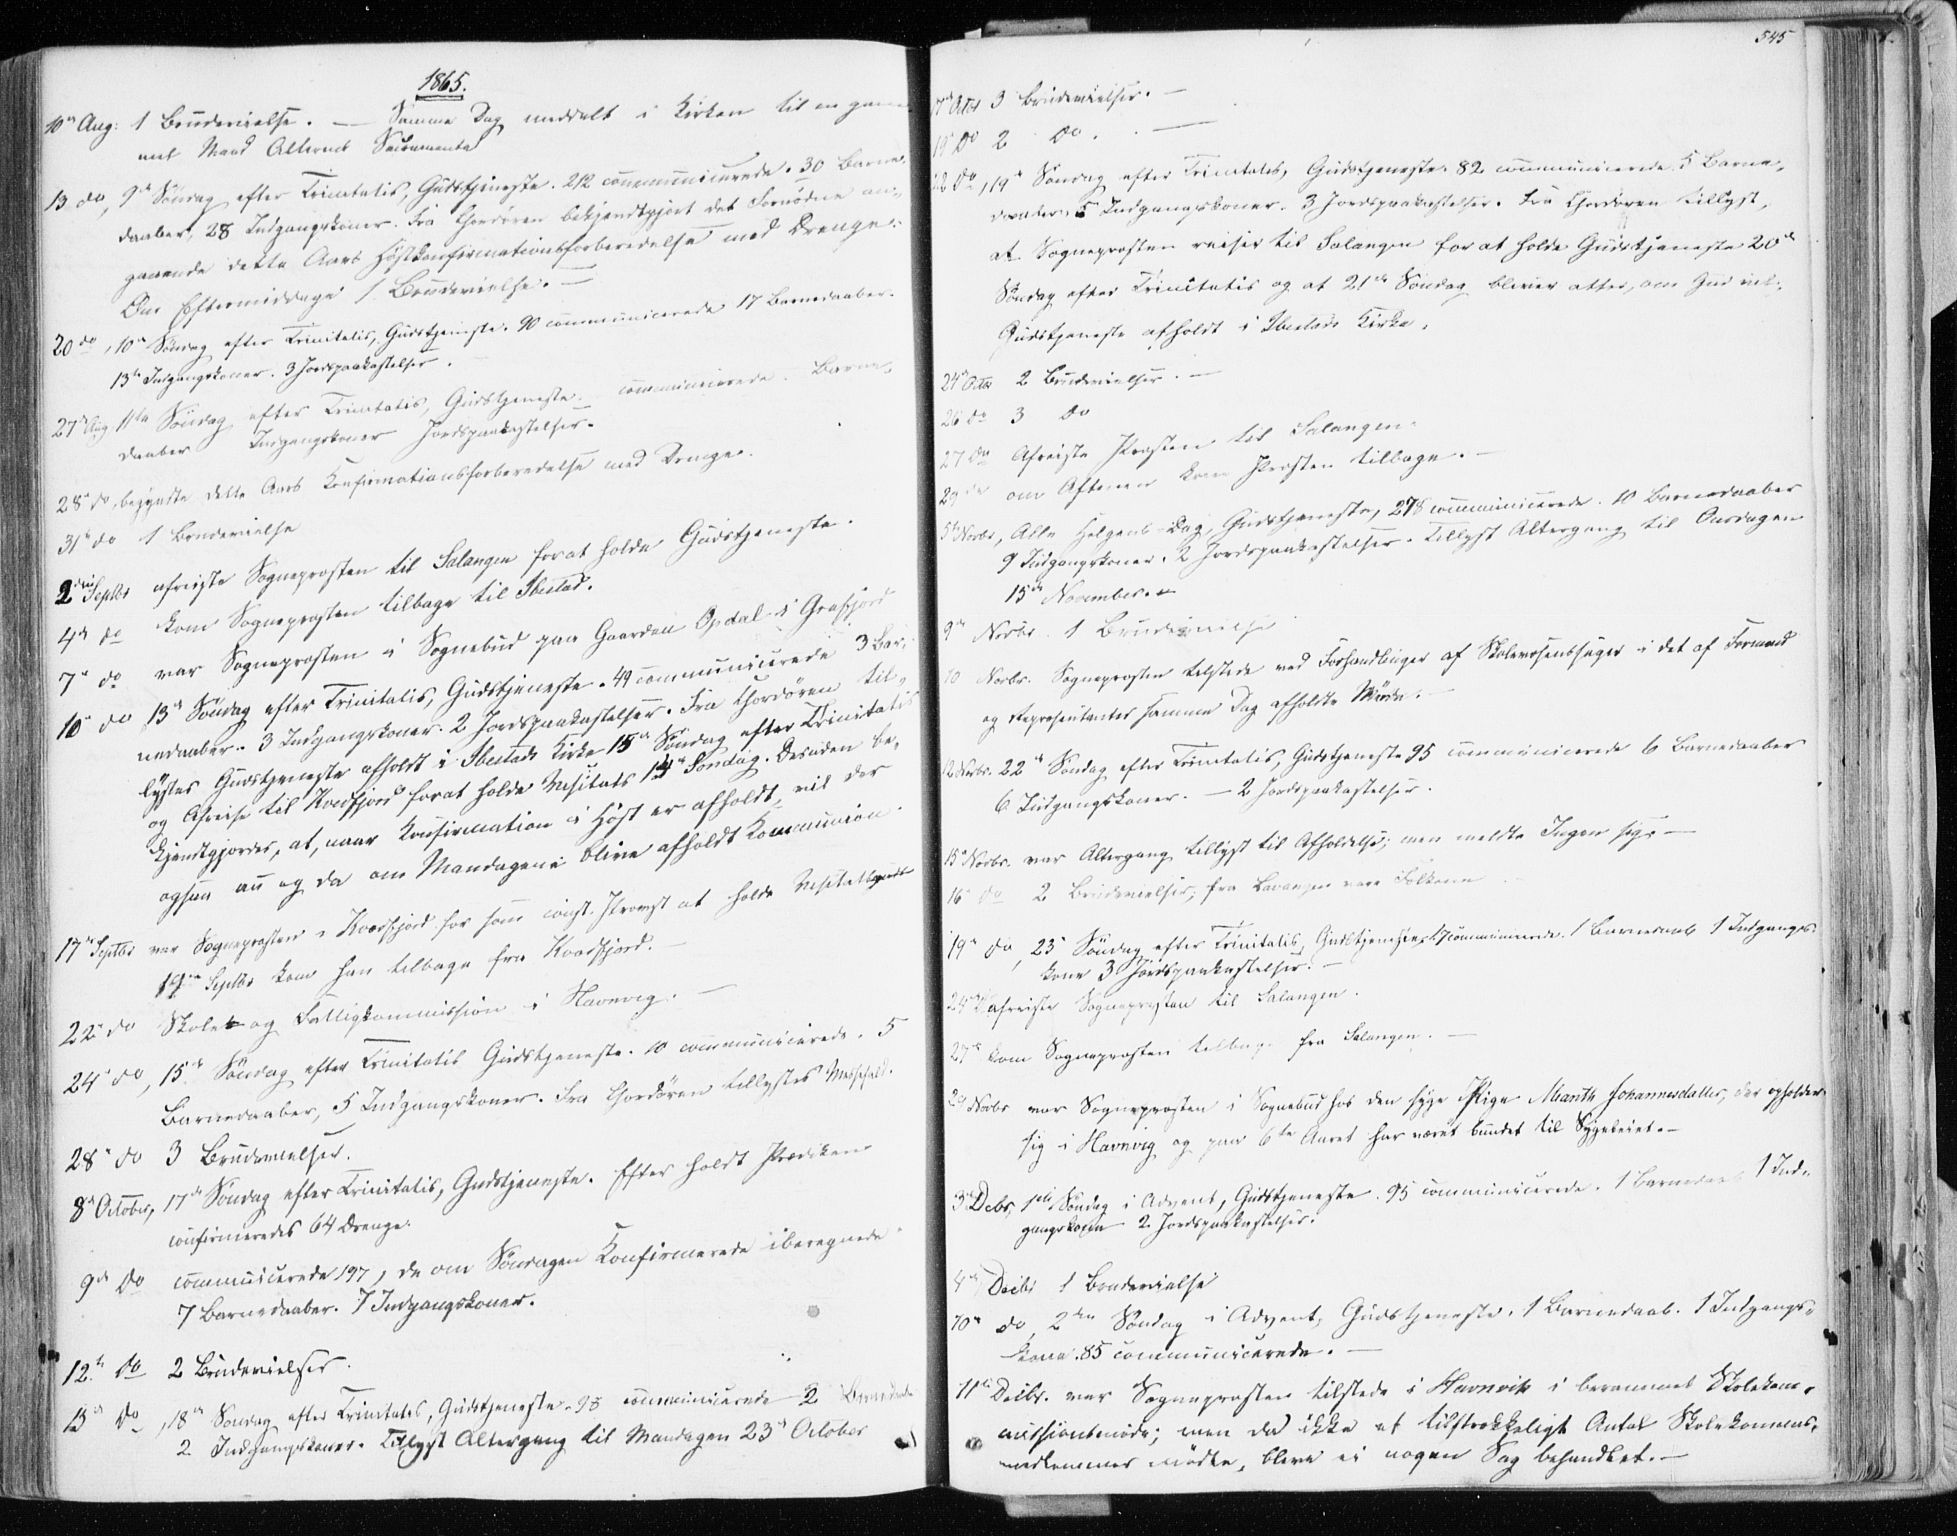 1865.
10de Aug: 1 Brudevielse. — Samme Dag meddelt i Kirken til en gam
mel Mand Alterens Sacramente
13 do, 9de Søndag efter Trinitatis, Gudstjeneste. 212 communicerede. 30 Barne-
daaber, 28 Indgangskoner. Fra Chordøren bekjendtgjort det Fornødne an-
gaaende dette Aars Høstkonfirmationsforberedelse med Drenge.
Om Eftermiddagen 1 Brudevielse. —
20 do, 10de Søndag efter Trinitatis, Gudstjeneste. 90 communicerede 17 Barnedaaber.
13 Indgangskoner. 3 Jordspaakastelser.
27de Aug. 11te Søndag efter Trinitatis, Gudstjeneste. communicerede. Barne-
daaber Indgangskoner Jordspaakastelser.
28de do, begyndte dette Aars Konfirmationsforberedelse med Drenge.
31te do 1 Brudevielse
2den Septbr afreiste Sogneprosten til Salangen forat holde Gudstjeneste.
4de do kom Sogneprosten tilbage til Ibestad.
7de do var Sogneprosten i Sognebud paa Gaarden Opdal i Grafjord
10de do 13de Søndag efter Trinitatis, Gudstjeneste. 49 communicerede 3 Bar-
nedaaber. 3 Indgangskoner. 2 Jordspaakastelser. Fra Chordøren til-
lystes Gudstjeneste afholdt i Ibestads Kirke 15de Søndag efter Trinitatis
og Afreise til Kvedfjord forat holde Visitats 14de Søndag. Desuden be-
kjendtgjordes, at, naar Konfirmation i Høst er afholdt, vil der
ogsaa nu og da om Mandagene blive afholdt Kommunion.
17de Septbr var Sogneprosten i Kvædfjord for som const. Provst at holde Visitats
19de Septbr kom han tilbage fra Kvædfjord. —
22de do Skole og Fattigkommission i Havnvig. —
24de do, 15de Søndag efter Trinitatis Gudstjeneste. 10 communicerede. 5
Barnedaaber, 5 Indgangskoner. Fra Chordøren tillystes Messefald.
28de do 3 Brudevielser.
8de October, 17de Søndag efter Trinitatis, Gudstjeneste. Efter holdt Prædiken
confirmeredes 64 Drenge.
9de do communicerede 197, de om Søndagen Konfirmerede iberegnede
7 Barnedaaber. 7 Indgangskoner.
12te do 2 Brudevielser.
15de do, 18de Søndag efter Trinitatis, Gudstjeneste. 93 communicerede 2 Barnedaabe
2 Indgangskoner. Tillyst Altergang til Mandagen 23de October
545
17de Octbr 3 Brudevielser. —
19 do 2 do. —
22 do, 19de Søndag efter Trinitatis, Gudstjeneste. 82 communicerede. 5 Barne-
daaber, 5 Indgangskoner. 3 Jordspaakastelser. Fra Chordøren tillyst,
at Sogneprosten reiser til Salangen for at holde Gudstjeneste 20de
Søndag efter Trinitatis og at 21de Søndag bliver atter, om Gud vil,
Gudstjeneste afholdt i Ibestads Kirke.
24de Octbr 2 Brudevielser. —
26 do 3 do
27 do Afreiste Prosten til Salangen.
29 do om Aftenen kom Prosten tilbage. —
5te Novbr, Alle Helgens-Dag, Gudstjeneste, 278 communicerede. 10 Barnedaaber
9 Indgangskoner. 2 Jordspaakastelser. Tillyst Altergang til Onsdagen
15de November. —
9de Novbr. 1 Brudevielse
10 Novbr. Sogneprosten tilstede ved Forhandlinger af Skolevæsenssager i det af Formænd
og Repræsentanter samme Dag afholdte Møde. —
12 Novbr. 22de Søndag efter Trinitatis, Gudstjeneste 95 communicerede 6 Barnedaaber
6 Indgangskoner. — 2 Jordspaakastelser.
15de Novbr. var Altergang tillyst til Afholdelse; men meldte Ingen sig. —
16de do 2 Brudevielser, fra Lavangen vare Folkene
19de do, 23de Søndag efter Trinitatis, Gudstjeneste, 17 communicerede. 1 Barnedaab 1 Indgangs-
kone 3 Jordspaakastelser. —
24de do afreiste Sogneprosten til Salangen.
27de kom Sogneprosten tilbage fra Salangen. —
29 Novbr var Sogneprosten i Sognebud hos den syge Pige Meanth Johannesdatter, der opholder
sig i Havnvig og paa 6te Aaret har været bundet til Sygeleiet. —
3de Debr, 1ste Søndag i Advent, Gudstjeneste. 95 communicerede. 1 Barnedaab 1 Ind-
gangskone 2 Jordspaakastelser.
4de Decbr 1 Brudevielse
10de do, 2den Søndag i Advent, Gudstjeneste. 1 Barnedaab. 1 Indgangs-
kone. 85 communicerede. —
11te Decbr. var Sogneprosten tilstede i Havnvik i berammet Skolekom-
missionsmøde; men da ikke et tilstrækkeligt Antal Skolekommis.
medlemmer mødte, bleve ei nogen Sag behandlet. —